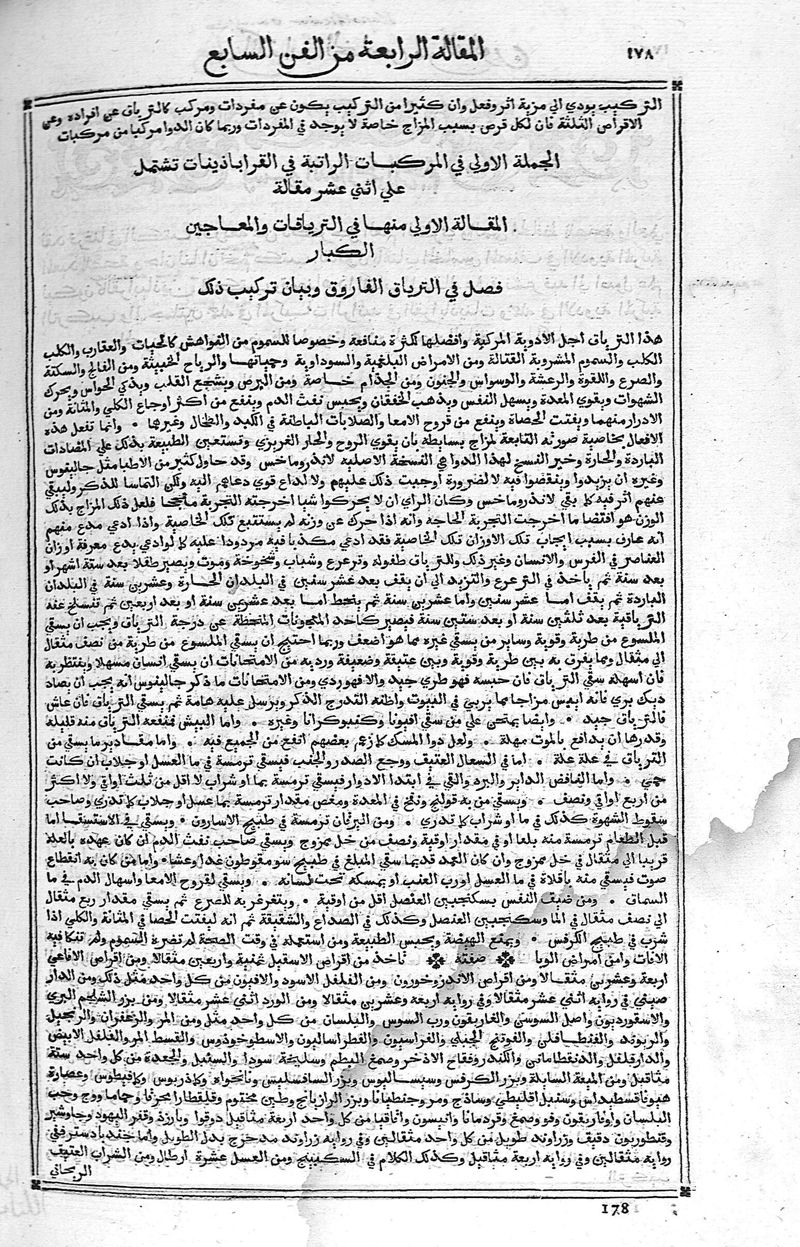 ١٧٨
المقالة الرابعة من الفن السابع
التركيب يودي الي مزية اثر وفعل وان كثيرا من التركيب يكون عن مفردات ومركب كالترياق عن افراده وعن
الاقراص الثلثة فان لكل قرص بسبب المزاج خاصة لا يوجد في المفردات وربما كان الدوا مركبا من مركبات
الجملة الاولي في المركبات الراتبة في القراباذينات تشتمل
علي اثني عشر مقالة
المقالة الاولي منها في الترياقات والمعاجين
الكبار
فصل في الترياق الفاروق وبيان تركيب ذلك
هذا الترياق اجل الادوية المركبة وافضلها لكثرة منافعه وخصوصا للسموم من النواهش كالحيات والعقارب والكلب
الكلب والسموم المشروبة القتالة ومن الامراض البلغمية والسوداوية وحمياتها والرياح الخبيثة ومن الفالج والسكتة
والصرع واللقوة والرعشة والوسواس والجنون ومن الجذام خاصة ومن البرص ويشجع القلب ويذكي الحواس ويحرك
الشهوات ويقوي المعدة ويسهل النفس ويذهب الخفقان ويحبس نفث الدم وينفع من اكثر اوجاع الكلي والمثانة ومن
الادرار منهما ويفتت الحصاة وينفع من قروح الامعا والصلابات الباطنة في الكبد والطحال وغيرها وانما تفعل هذه
الافعال بخاصية صورته التابعة لمزاج بسايطه بان يقوي الروح والحار الغريزي وتستعين الطبيعة بذلك علي المضادات
الباردة والحارة وخير النسخ لهذا الدوا هي النسخة الاصلية لاندروماخس وقد حاول كثير من الاطبا مثل جالينوس
وغيره ان يزيدوا وينقصوا فيه لا لضرورة اوجبت ذلك عليهم ولا لداع قوي دعاهم اليه ولكن التماسا للذكر وليبقي
عنهم اثر فيه كما بقي لاندروماخس وكان الراي ان لا يحركوا شيا اخرجته التجربة فلعل ذلك المزاج بذلك
الوزن هو اقتضا ما اخرجت التجربة الحاجه وانه اذا حرك عن وزنه لم يستتبع تلك الخاصية واذا ادعي مدع منهم
انه عارف بسبب ايجاب تلك الاوزان تلك الخاصية فقد ادعي مكذبا فيه مردودا عليه كما لو ادعي مدع معرفة اوزان
العناصر في الفرس والانسان وغير ذلك وللترياق طفولة وترعرع وشباب وشيخوخة وموت ويصير طفلا بعد ستة اشهر او
بعد سنة ثم ياخذ في الترعرع والتزيد الي ان يقف بعد عشر سنين في البلدان الحارة وعشرين سنة في البلدان
الباردة ثم يقف اما عشر سنين واما عشرين سنة ثم ينحط اما بعد عشرين سنة او بعد اربعين ثم تنسلخ عنه
الترياقية بعد ثلثين سنة او بعد ستين سنة فيصير كاحد المعجونات المنحطة عن درجة الترياق ويجب ان يسقي
الملسوع من طرية وقوية وساير من يسقي غيره مما هو اضعف وربما احتيج ان يسقي الملسوع من طرية من نصف مثقال
الي مثقال ومما يفرق به بين طرية وقوية وبين عتيقة وضعيفة ورديه من الامتحانات ان يسقي انسان مسهلا وينتظر به
فان اسهله سقي الترياق فان حبسه فهو طري جيد والا فهو ردي ومن الامتحانات ما ذكر جالينوس انه يجب ان يصاد
ديك بري فانه ايبس مزاجا مما يربي في البيوت واظنه التدرج الذكر ويرسل عليه هامة ثم يسقي الترياق فان عاش
فالترياق جيد وايضا يمتحن علي من سقي افيونا وغيره واما البيش فمنفعه الترياق منه قليلة
وقدرها ان يدافع بالموت مهلة ولعل دوا المسك كما زعم بعضهم انفع من الجميع فيه واما مقادير ما يسقي من
الترياق في علة علة اما في السعال العتيق ووجع الصدر والجنب فيسقي ترمسة في ما العسل او جلاب ان كانت
حمي واما النافض الداير والبرد والقي في ابتدا الادوار فيسقي ترمسة بما او شراب لا اقل من ثلث اواقي ولا اكثر
من اربع اواقي ونصف ويسقي من به قولنج ونفخ في المعدة ومغص مقدار ترمسة بما عسل او جلاب وصاحب
سقوط الشهوة كذلك في ما او شراب ومن اليرقان ترمسة في طبيخ الاسارون ويسقي في الاستسقا اما
قبل الطعام ترمسة منه بلعا او في مقدار اوقية ونصف من خل ممزوج ويسقي صاحب نفث الدم ان كان عهده بالعلة
قريبا الي مثقال في خل ممزوج وان كان العهد قديما سقي المبلغ في طبيخ سومقوطون غدا وعشا واما من كان به انقطاع
صوت فيسقي منه باقلاة في ما العسل او رب العنب او يمسكه تحت لسانه ويسقي لقروح الامعا واسهال الدم في ما
السماق ومن ضيق النفس بسكنجبين العنصل اقل من اوقية ويتغرغر به للصرع ثم يسقي مقدار ربع مثقال
الي نصف مثقال في الما وسكنجبين العنصل وكذلك في الصداع والشقيقة ثم انه ليفتت الحصا في المثانة والكلي اذا
شرب في طبيخ الكرفس ويمنع الهيضة ويحبس الطبيعة ومن استعمله في وقت الصحة لم تضره السموم ولم تنكا فيه
الافات وامن امراض الوبا صفته تاخذ من اقراص الاسقيل ثمنية واربعين مثقالا ومن اقراص الافاعي
اربعة وعشرين مثقالا ومن اقراص الاندروخورون ومن الفلفل الاسود والافيون من كل واحد مثل ذلك ومن الدار
صيني في رواية اثني عشر مثقالا وفي رواية اربعة وعشرين مثقالا ومن الورد اثني عشر مثقالا ومن بزر الشلجم البري
والاسقورديون واصل السوسن والغاريقون ورب السوس والبلسان من كل واحد مثل ومن المر والزعفران والزنجبيل
والريوند والفنطافلن والفوتنج الجبلي والفراسيون والفطراساليون والاسطوخوذوس والقسط المر والفلفل الابيض
والدارفلفل والكندر وفقاح الاذخر وصمغ البطم وسليخة سودا والسنبل والجعدة من كل واحد ستة
مثاقيل ومن الميعة السايلة وبزر الكرفس وسيساليوس وبزر ونانخواه وكماذريوس وكمافيطوس وعصارة
هيوفاقسطيداس وسنبل اقليطي وساذج ومر وجنطيانا وبزر الرازيانج وطين مختوم وقلقطارا محرقا وحماما ووج وحب
البلسان واوفاريقون وفو وصمغ وقردمانا وانيسون واقاقيا من كل واحد اربعة مثاقيل دوقوا وبارزد وقفر اليهود وجاوشير
وقنطوريون دقيق وزراوند طويل من كل واحد مثقالين وفي رواية زراوند مدحرج بدل الطويل واما جندبادستر ففي
رواية مثقالين وفي رواية اربعة مثاقيل وكذلك الكلام في السكبينج ومن العسل عشرة ارطال ومن الشراب العتيق
الريحاني
178